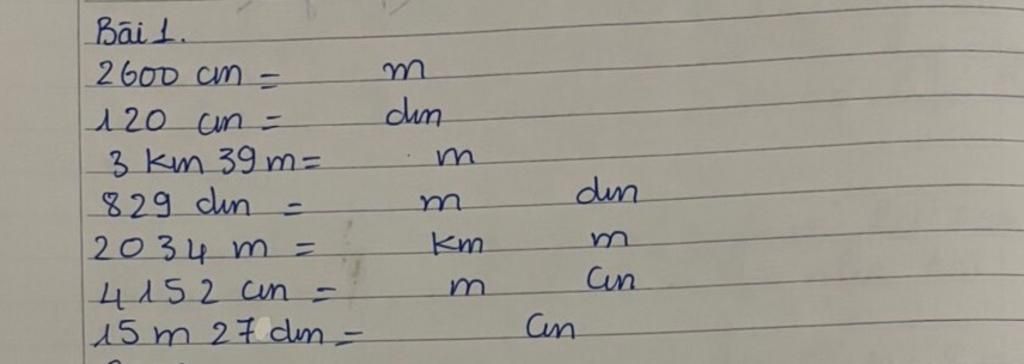 Bài 1.
2600 cm = m
120 cm = dm
3 km 39 m = m
829 dm = m dm
2034 m = km m
4152 cm = m cm
15 m 27 dm = cm